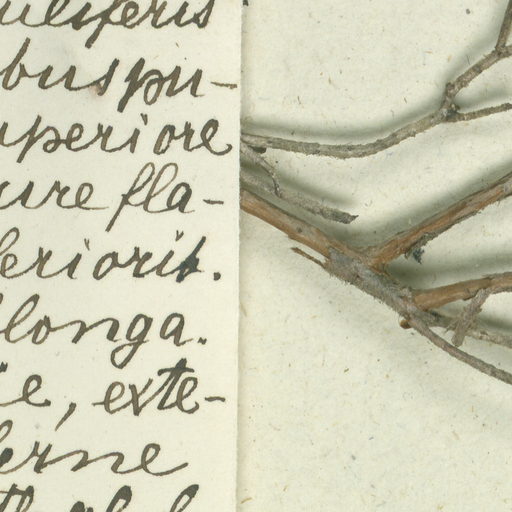 uliferis
bus pu-
uperiore
ure fla-
feriorib.
longa.
ie, exte-
erne